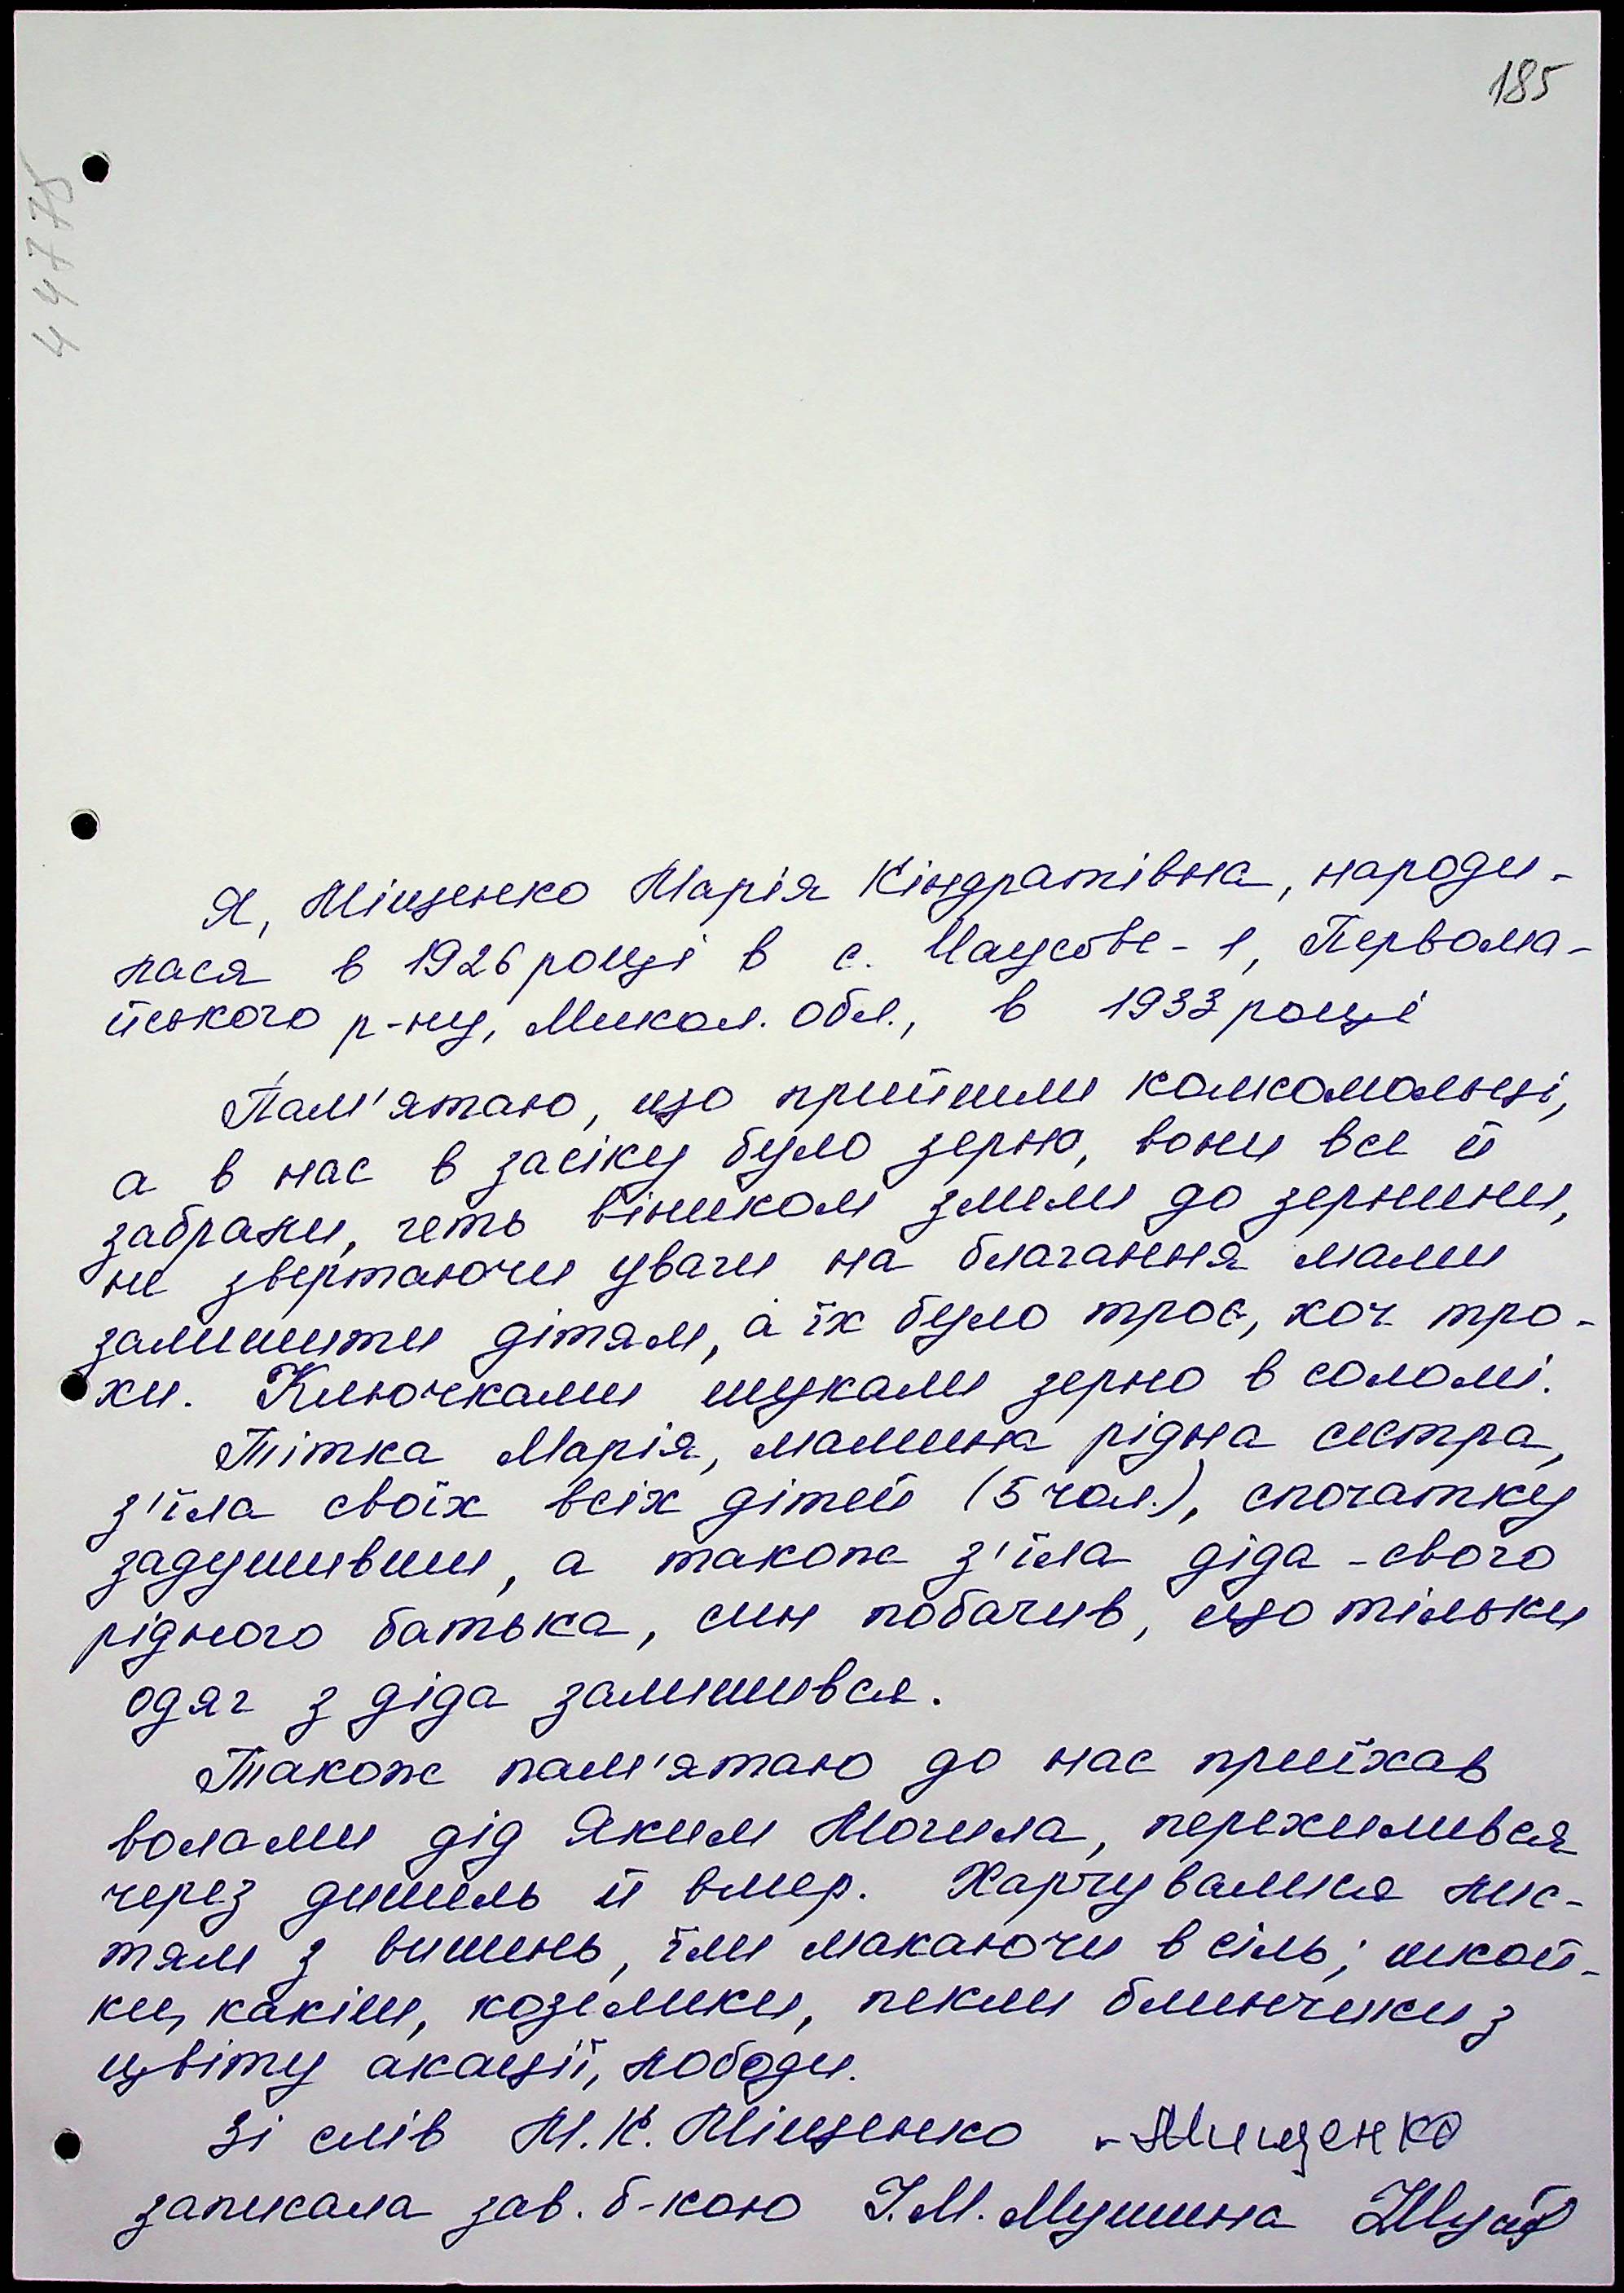 185
44775
Я, Міщенко Марія Кіндратівна, народи-
лася в 1926 році в с. Чаусове-1, Первома-
йського р-ну, Микол. обл., в 1933 році
Пам'ятаю, що прийшли комсомольці,
а в нас в засіку було зерно, вони все й
забрали, геть віником змели до зернини,
не звертаючи уваги на благання мами
залишити дітям, а їх було троє, хоч тро-
хи. Ключками шукали зерно в соломі.
Тітка Марія, мамина рідна сестра,
з'їла своїх всіх дітей (5 чол.), спочатку
задушивши, а також з'їла діда - свого
рідного батька, син побачив, що тільки
одяг з діда залишився.
Також пам'ятаю до нас приїхав
волами дід Яким Могила, перехилився
через дишель й вмер. Харчувалися лис-
тям з вишень, їли макаючи в сіль; шкой-
ки, какіш, козелики, пекли блинчики з
цвіту акації, лободи.
Зі слів М.К. Міщенко - Мищенко
записала зав. б-кою І.М. Мушина